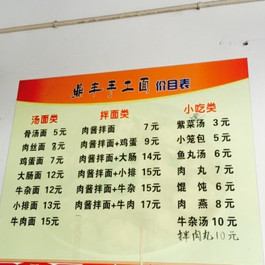 鼎丰手工面 价目表
汤面类 拌面类 小吃类
骨汤面 5元 肉酱拌面 7元 紫菜汤 3元
肉丝面 8元 肉酱拌面+鸡蛋 9元 小笼包 5元
鸡蛋面 7元 肉酱拌面+大肠 14元 鱼丸汤 6元
大肠面 12元 肉酱拌面+小排 15元 肉丸 7元
牛杂面 12元 肉酱拌面+牛杂 15元 馄饨 6元
小排面 13元 肉酱拌面+牛肉 17元 肉燕 8元
牛肉面 15元 牛杂汤 10元
拌肉丸 10元